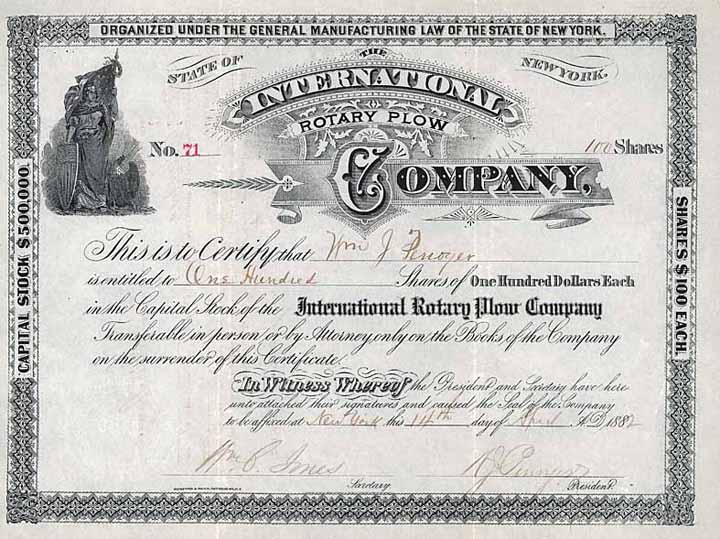 ORGANIZED UNDER THE GENERAL MANUFACTURING LAW OF THE STATE OF NEW YORK.
STATE OF NEW YORK.
THE
INTERNATIONAL
ROTARY PLOW
COMPANY,
No. 71
100 Shares
CAPITAL STOCK $500,000.
SHARES $100 EACH.
This is to Certify that Wm J
is entitled to One Hundred Shares of One Hundred Dollars Each
in the Capital Stock of the International Rotary Plow Company
Transferable in person or by Attorney, only on the Books of the Company
on the surrender of this Certificate.
In Witness Whereof the President and Secretary have here
unto attached their signatures and caused the Seal of the Company
to be affixed at New York this 14th day of April A.D. 1882
Secretary. President.